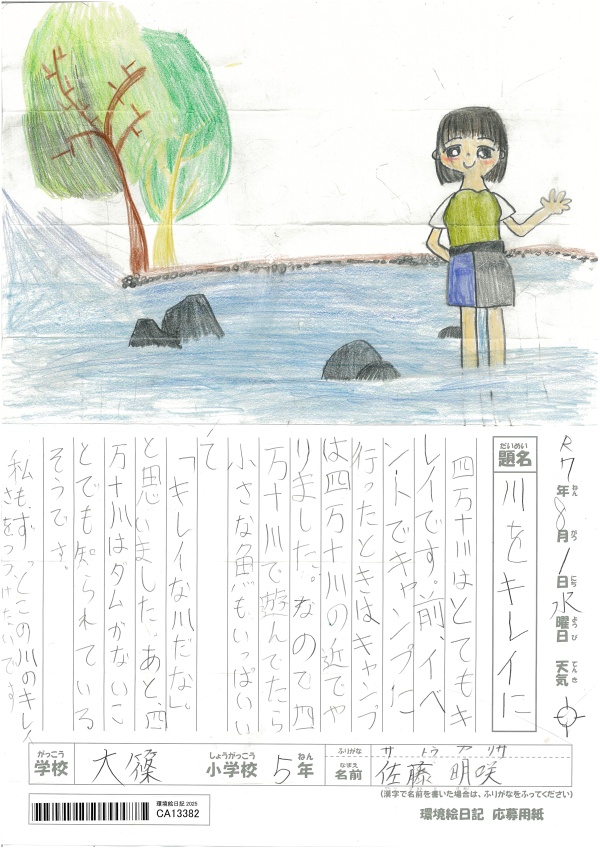 R7年8月1日水曜日 天気
ねん がつ にち ようび てんき
だいめい
題名 川をキレイに
四万十川はとてもキ
レイです。前、イベ
ントでキャンプに
行ったときはキャンプ
は四万十川の近でや
りました。なので四
万十川で遊んでたら
小さな魚もいっぱいい
て
「キレイな川だな。」
と思いました。あと、四
万十川はダムがないこ
とでも知られている
そうです。
私もずっとこの川のキレイ
さをつづけたいです
がっこう しょうがっこう ねん ふりがな サトウ アリサ
学校 大篠 小学校 5年 なまえ 名前 佐藤 明咲
(漢字で名前を書いた場合は、ふりがなをふってください)
環境絵日記2025
CA13382
環境絵日記 応募用紙